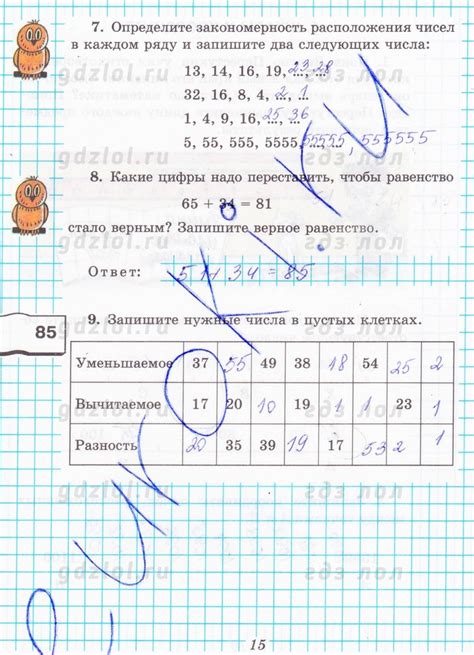 7. Определите закономерность расположения чисел
в каждом ряду и запишите два следующих числа:
13, 14, 16, 19, 23, 28
32, 16, 8, 4, 2, 1
1, 4, 9, 16, 25, 36
5, 55, 555, 5555, 55555, 555555
8. Какие цифры надо переставить, чтобы равенство
65 + 34 = 81
стало верным? Запишите верное равенство.
Ответ: 51 + 34 = 85
85
9. Запишите нужные числа в пустых клетках.
Уменьшаемое 37 55 49 38 18 54 25 2
Вычитаемое 17 20 10 19 1 1 23 1
Разность 20 35 39 19 17 53 2 1
15
gdzlol.ru
гдз лол
gdzlol.ru
gdzlol.ru
гдз лол
gdzlol.ru
гдз лол
gdzlol.ru
гдз лол
gdzlol.ru
гдз лол
gdzlol.ru
гдз лол